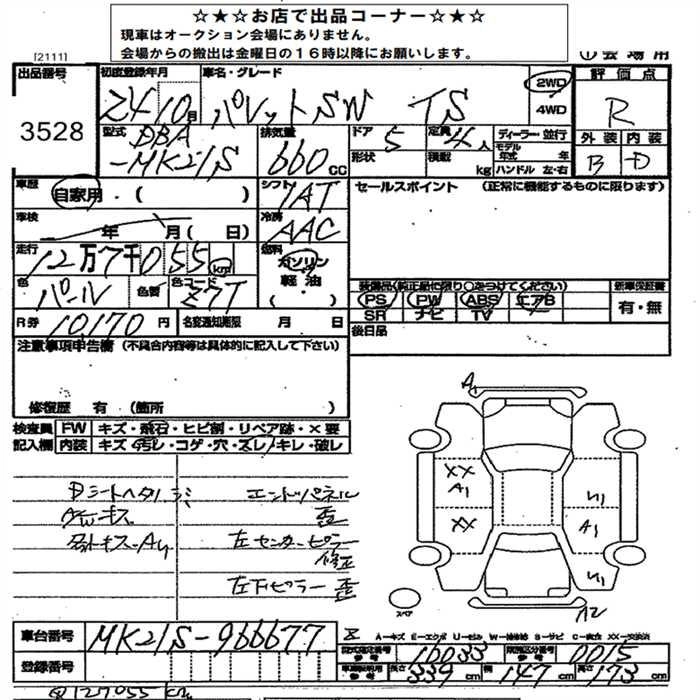 ☆★☆お店で出品コーナー☆★☆
現車はオークション会場にありません。
会場からの搬出は金曜日の16時以降にお願いします。
[2111] ①会場用
出品番号 初度登録年月 車名・グレード 評価点
3528 24 10月 パレットSW TS 2WD 4WD R
型式 DBA-MK21S 排気量 660 CC ドア 5 定員 4人 ディーラー・並行 外装 内装
形状 積載 kg モデル年式 年 ハンドル 左・右 B D
車歴 自家用・( ) シフト IAT セールスポイント (正常に機能するものに限ります)
車検 年 月( 日) 冷房 AAC
走行 12万7千055 km 燃料 ガソリン 軽油
色 パール 色替 色コード Z7T ・( )
装備品(純正品に限り○をつけてください) 新車保証書
PS PW ABS エアB 有・無
SR ナビ TV
R券 10,170円 名変通知期限 月 日 後日品
注意事項申告欄 (不具合内容等は具体的に記入して下さい)
修復歴 有 (箇所 )
検査員 FW キズ・飛石・ヒビ割・リペア跡・×要
記入欄 内装 キズ・汚レ・コゲ・穴・スレ・キレ・破レ
Dシートヘタリ エンドパネル
歪
左センターピラー
修正
左下ピラー 歪
A1
XX
A1
XX
A1
A2
スペア
A-キズ E-エクボ U-凹み W-補修跡 S-サビ C-腐食 XX-交換済
車台番号 MK21S-966677
型式指定番号 参考 16033 類別区分番号 参考 0015
登録番号 長さ 339cm 幅 147cm 高さ 173cm
127055 km